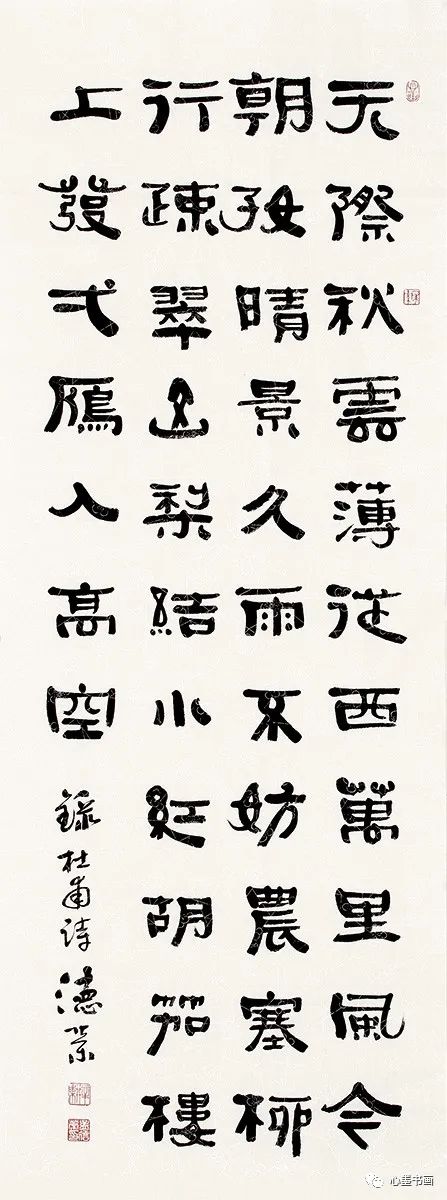 天際秋雲薄從西萬里風今
朝好晴景久雨不妨農塞柳
行疎翠山梨結小紅胡笳樓
上發弌鴈入高空
錄杜甫詩
书画